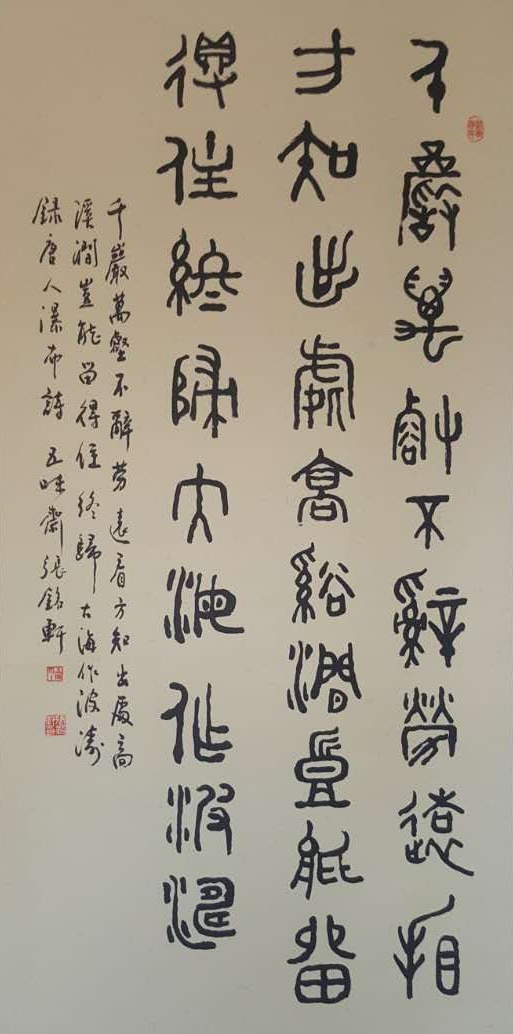 千巖萬壑不辭勞遠看
方知出處高谿澗豈能留
得住終歸大海作波濤
千巖萬壑不辭勞遠看方知出處高
溪澗豈能留得住終歸大海作波濤
録唐人瀑布詩 五味齋張銘軒